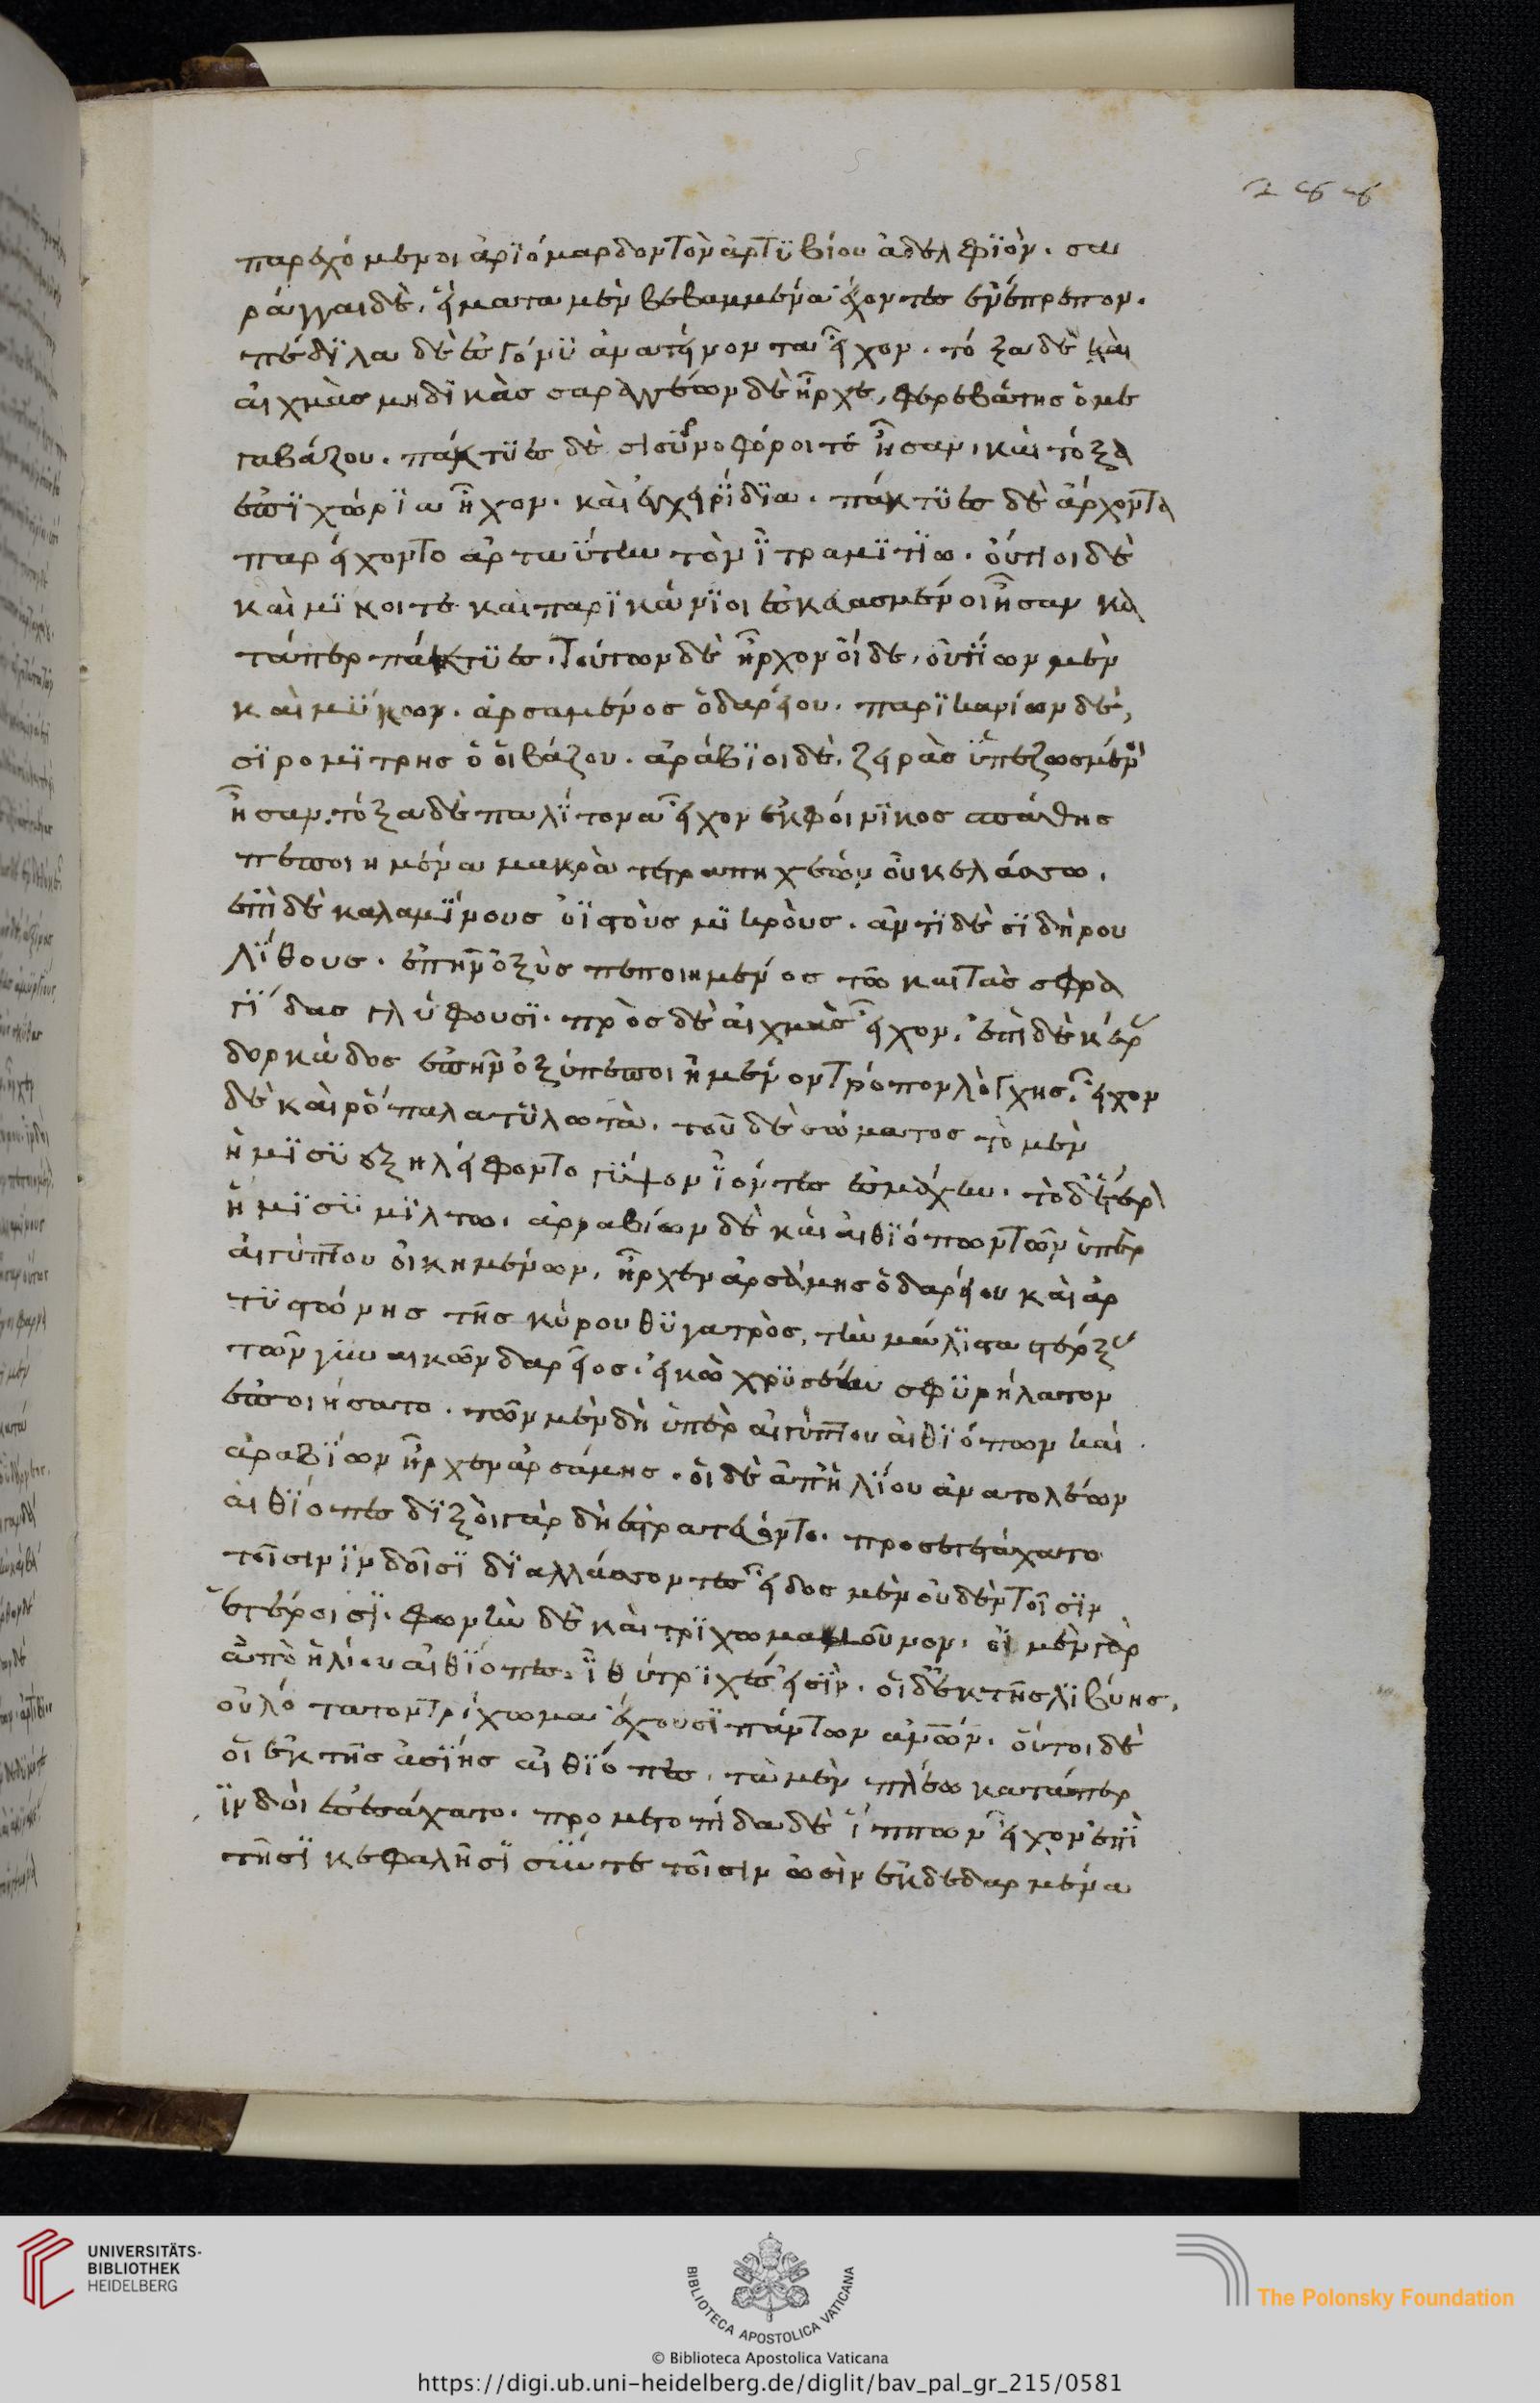 266
παρεχόμενοι ἀρϊόμαρδον τὸν ἀρτϋβίου ἀδελφϊόν. σα
ράγγαι δὲ, εἵματα μὲν βεβαμμένα ἔχοντες ἐνέπρεπον.
πέδϊλα δὲ ἐς γόνϋ ἀνατείνοντα εἶχον. τόξα δὲ καὶ
αἰχμὰς μηδϊκὰς σαραγγέων δὲ ἦρχε, φερεβάτης ὁ με
γαβάζου. πάκτϋες δὲ σισϋρνοφόροι τέ ἦσαν, καὶ τόξα
ἐπϊχώρϊα ἦχον. καὶ ἐγχειρϊδϊα. πάκτϋες δὲ ἄρχοντα
παρείχοντο ἀρταΰτην τὸν ϊτραμϊτϊω. οὔτιοι δὲ
καὶ μϊκοι τε καὶ παρϊκάνϊοι ἐσκεασμένοι ἦσαν κα
τάπερ πάκτϋες. τούτων δὲ ἦρχον οἵδε, οὐτΐων μὲν
καὶ μϋκων. ἀρσαμένος ὁ δαρείου. παρϊκανίων δὲ,
σϊρομϊτρης ὁ οἰβάζου. ἀράβϊοι δὲ, ζειρὰς ϋπεζωσμένοι
ἦσαν, τόξα δὲ παλΐτονα εἶχον ἐκ φοίνϊκος σπάθης
πεποιημένα μακρὰ τετραπηχέων οὐκ ἐλάσσω,
ἐπὶ δὲ καλαμΐνους ὀϊστοὺς μϊκρούς. ἀντὶ δὲ σϊδήρου
λΐθους. ἐπῆν ὀξὺς πεποιημένος τῶ καὶ τὰς σφρα
γΐδας γλύφουσϊ. πρὸς δὲ αἰχμὰς εἶχον. ἐπὶ δὲ κέρας
δορκάδος ἐπῆν ὀξὺ πεποιημένον τρόπον λόγχης. εἶχον
δὲ καὶ ῥόπαλα τϋλωτά. τοῦ δὲ σώματος τὸ μὲν
ἥμϊσϋ ἐξηλείφοντο γύψον ϊόντες ἐς μάχην. τὸ δ' ἕτερον
ἥμϊσϋ μϊλτω. ἀρραβίων δὲ καὶ αἰθϊόπων τῶν ὑπὲρ
αἰγύπτου οἰκημένων, ἦρχεν ἀρσάμης ὁ δαρείου καὶ ἀρ
τϋστώνης τῆς κύρου θϋγατρὸς, τὴν μάλϊστα στέρξας
τῶν γυναικῶν δαρεῖος. εἰκὼ χρϋσέην σφϋρήλατον
ἐποιήσατο. τῶν μὲν δὴ ὑπὲρ αἰγύπτου αἰθϊόπων καὶ
ἀραβΐων ἦρχεν ἀρσάμης. οἱ δὲ ἀπ' ἡλΐου ἀνατολέων
αἰθΐοπες δϊξοὶ γὰρ δὴ ἐστρατεύοντο. προσετετάχατο
τοῖσιν ϊνδοῖσϊ δϊαλλάσσοντες εἶδος μὲν οὐδὲν τοῖσϊν
ἑτέροισϊ. φωνὴν δὲ καὶ τρΐχωμα μοῦνον. οἱ μὲν γὰρ
ἀπὸ ἡλίου αἰθΐοπες. ϊθύτρϊχές εἰσΐν. οἱ δ' ἐκ τῆς λϊβύης,
οὐλότατον τρίχωμα ἔχουσϊ πάντων ἀνθρώπων. οὗτοι δὲ
οἱ ἐκ τῆς ἀσΐης αἰθΐοπες, τὰ μὲν πλέω κατάπερ
ϊνδοὶ ἐσεσάχατο. προμετοπίδα δὲ ΐππων εἶχον ἐπὶ
τῆσϊ κεφαλῆσϊ σύν τε τοῖσιν ὠσὶν ἐκδεδαρμένα
UNIVERSITÄTS-
BIBLIOTHEK
HEIDELBERG
BIBLIOTECA APOSTOLICA VATICANA
The Polonsky Foundation
© Biblioteca Apostolica Vaticana
https://digi.ub.uni-heidelberg.de/diglit/bav_pal_gr_215/0581